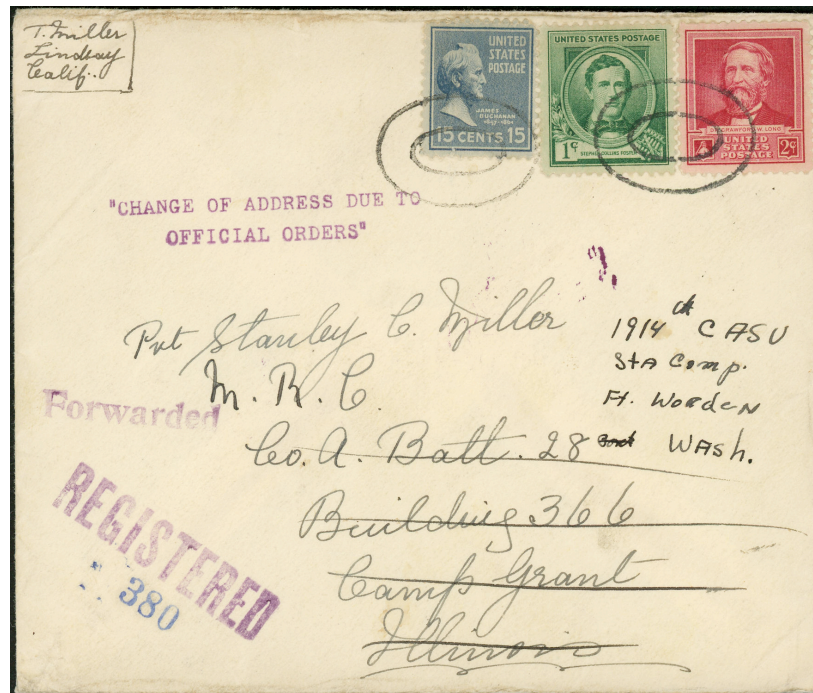 T. Miller
Lindsay
Calif.
UNITED
STATES
POSTAGE
JAMES
BUCHANAN
15 CENTS 15
UNITED STATES POSTAGE
1¢
STEPHEN COLLINS FOSTER
DR. CRAWFORD W. LONG
UNITED
STATES
POSTAGE
2¢
"CHANGE OF ADDRESS DUE TO
OFFICIAL ORDERS"
Pvt Stanley C. Miller
M. R. C.
Co. A. Batt. 28
Building 366
Camp Grant
Illinois
1914th CASU
StA Comp.
Ft. Worden
WASh.
Forwarded
REGISTERED
380